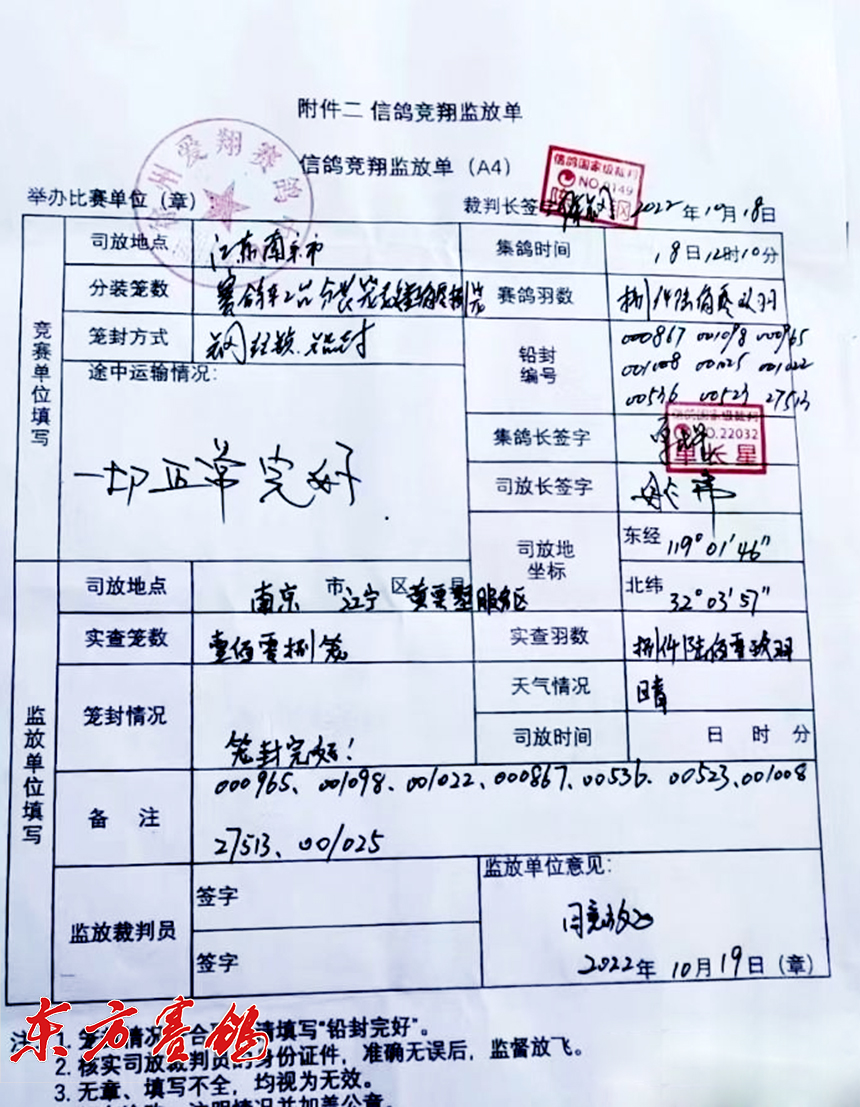 附件二 信鸽竞翔监放单
信鸽竞翔监放单（A4）
州爱翔赛鸽
信鸽国家级裁判
NO.
149
举办比赛单位（章）
裁判长签字 2022年10月18日
竞赛单位填写
司放地点 江苏南京市
集鸽时间 18日12时10分
分装笼数
赛鸽羽数 捌仟陆佰零玖羽
笼封方式
铅封编号
000867 001098 000965
001008 001025 001022
00536 00523 27513
途中运输情况：
一切正常完好.
集鸽长签字
信鸽国家级裁判
NO.22032
星
司放长签字
司放地坐标
东经 119°01′46″
北纬 32°03′57″
监放单位填写
司放地点 南京市江宁区黄栗墅服务区
实查笼数 壹佰零捌笼
实查羽数 捌仟陆佰零玖羽
笼封情况 笼封完好！
天气情况 晴
司放时间 日 时 分
备注 000965、001098、001022、000867、00536、00523、001008
27513、001025
监放裁判员
签字
签字
监放单位意见：
同意放飞
2022年10月19日（章）
东方赛鸽
注
1. 笼 情况 合 请填写“铅封完好”。
2. 核实司放裁判员的身份证件，准确无误后，监督放飞。
3. 无章、填写不全，均视为无效。